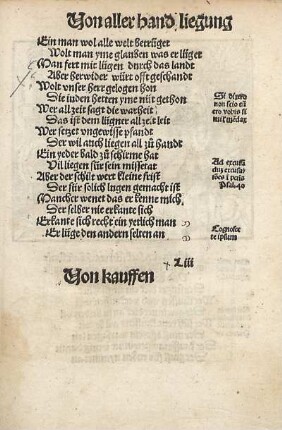 Von aller hand liegung
Ein man wol alle welt betrüget
Wolt man yme glauben was er lüget
Man fert mit lügen durch das landt
Aber herwider würt offt geschandt
Wolt vnser herr gelogen hon
Die iuden hetten yme nüt gethon
Wer all zeit sagt die warheit
Das ist dem lügner all zeit leit
Wer setzet vngewisse pfandt
Der wil auch liegen all zů handt
Ein yeder bald zů schirme hat
Vil liegen für sein missetat
Aber der schilt wert kleine frist
Der für solich lugen gemacht ist
Mancher wenet das er kenne mich
Der selber nie erkante sich
Erkante sich recht ein yerlich man
Er lüge den andern selten an
Si dixero
non scio
ero vobis si
milis mēdax
Ad excusā
das excusa
psal. 40
Cognosce
te ipsum
Liii
Von kauffen